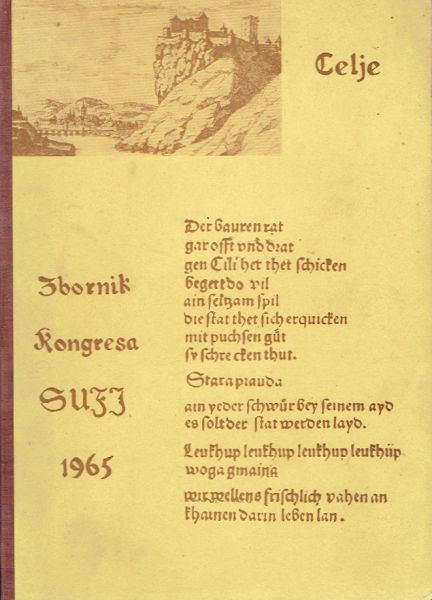 Celje
Der bauren rat
gar offt vnd drat
gen Cili her thet schicken
begert do vil
ain seltzam spil
die stat thet sich erquicken
mit puchsen gůt
sy schrecken thut.
Stara prauda
ain yeder schwůr bey seinem ayd
es solt der stat werden layd.
Leukhup leukhup leukhup leukhup
woga gmaina
wir wellens frischlich vahen an
khainen darin leben lan.
Zbornik
Kongresa
SUFJ
1965